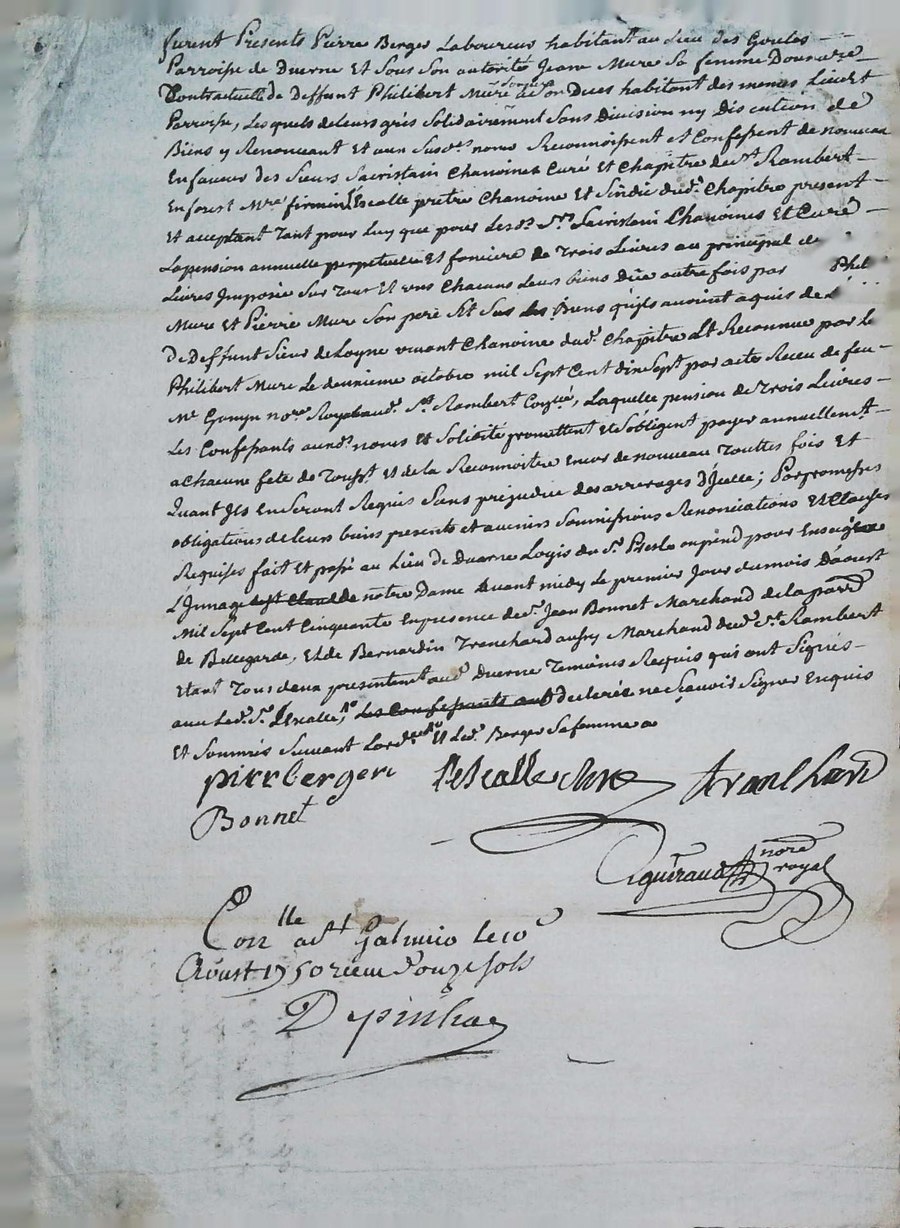 furent Presents Pierre Berger Laboureur habitant au lieu des Goules
Parroisse de Duerne Et Sous Son autorité Jeane Mure Sa femme Donnatre
Contractuelle de Deffunt Philibert Mure habitant des memes Lieu et
Parroisse, Lesquels de leurs grés Solidairement Sans Division ny Discution de
Biens y Renonceant Et aux Susd.ts noms Reconnoissent et Confessent de nouveau
En faveur des Sieurs Sacristain Chanoines Curé Et Chapitre de st. Rambert
En forest Mre. firmin L'Escalle prêtre Chanoine Et Sindic dud. Chapitre present
Et acceptant Tant pour Luy que pour Lesd. Srs. Sacristain Chanoines Et Curé
La pension annuelle perpetuelle Et fonciere de Trois Livres au principal de
Livres Imposée Sur Tous Et uns Chacuns leurs biens Düe autre fois par Phil
Mure et Pierre Mure Son pere Et Sur les Biens qu'ils avoient aquis de
De Deffunt Sieur de Loyne vivant Chanoine dud. Chapitre Et Reconnue par le
Philibert Mure Le deuxieme octobre mil Sept Cent dix Sept par acte Receu de feu
Me. Gonyn nore. Royal aud. St. Rambert Laquelle pension de Trois Livres
Les Confessants auxd. noms Et Solidité promettent Et S'obligent payer annuellemt.
a Chacune fete de Touss.t Et de la Reconnoitre Encor de nouveau Touttes fois Et
Quant Ils En Seront Requis Sans préjudice des arrerages d'Icelle; Par promesses
obligations de leurs biens presents et avenirs Soumissions Renonciations Et Clauses
Requises fait Et passé au Lieu de Duerne Logis du Sr. ou pend pour Enseigne
L'Image notre Dame avant midy Le premier Jour du mois D'aoust
Mil Sept Cent Cinquante En presence de Sr. Jean Bonnet Marchand de la parr.
de Bellegarde, Et de Bernardin Trenchard aussy Marchand dud. St. Rambert
Etant Tous deux presentemt. aud. Duerne Temoins Requis qui ont Signés
avec Led. Sr. L'Escalle, Les Confessants ont Declarée ne Sçavoir Signer Enquis
Et Sommés Suivant L'ord.ce Et Led. Berger Sa femme a
pierbergeri
L'Escalle
Bonnet
nore
royal
Conlle. act. Galmio le 10e
Aoust 1750 receu douze sols
Depinhac